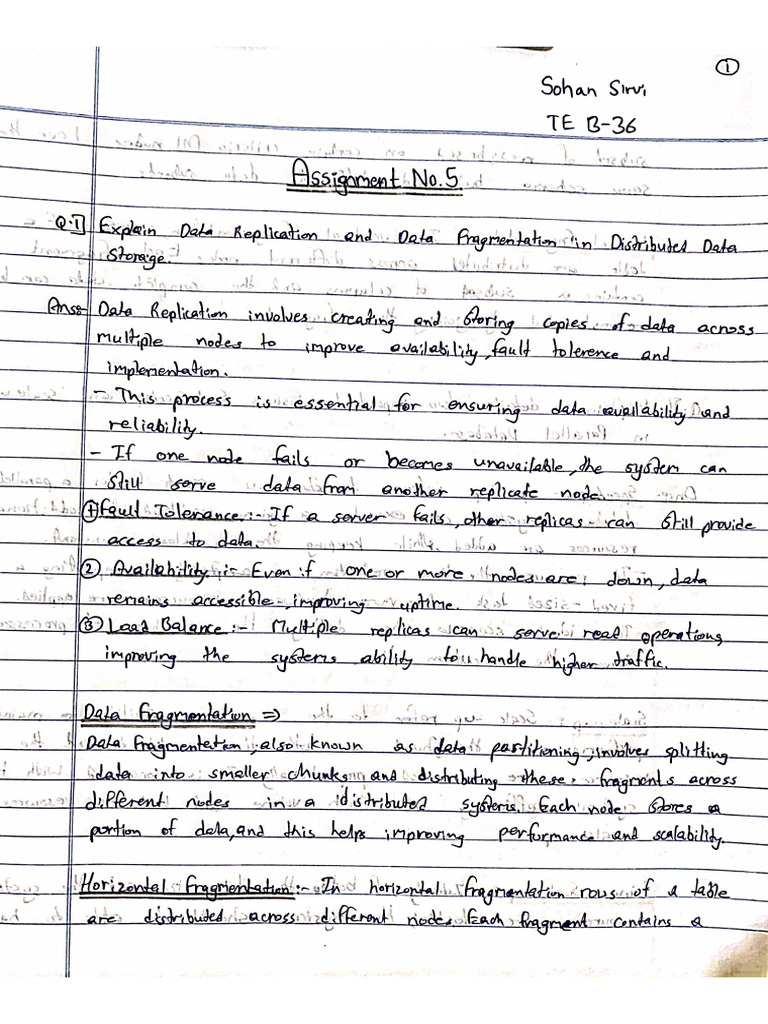 1
Sohan Sirvi
TE B-36
Assignment No.5
Q.1] Explain Data Replication and Data Fragmentation in Distributed Data
Storage.
Ans:- Data Replication involves creating and storing copies of data across
multiple nodes to improve availability, fault tolerence and
implementation.
- This process is essential for ensuring data availability and
reliability.
- If one node fails or becomes unavailable, the system can
still serve data from another replicate node.
1 Fault Tolerance:- If a server fails, other replicas can still provide
access to data.
2 Availability:- Even if one or more nodes are down, data
remains accessible, improving uptime.
3 Load Balance:- Multiple replicas can serve read operations,
improving the systems ability to handle higher traffic.
Data Fragmentation ⇒
Data fragmentation, also known as data partitioning, involves splitting
data into smaller chunks and distributing these fragments across
different nodes in a distributed systems. Each node stores a
portion of data, and this helps improving performance and scalability.
Horizontal Fragmentation:- In horizontal fragmentation rows of a table
are distributed across different nodes. Each fragment contains a